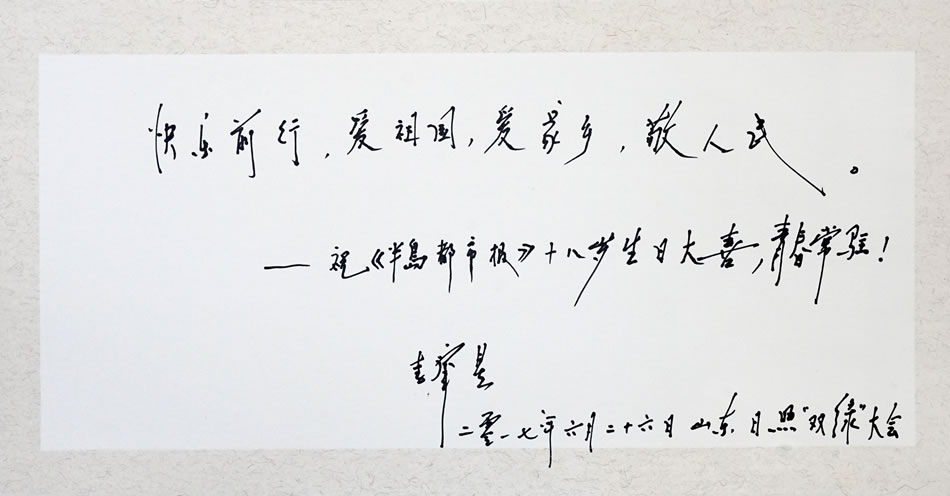 快乐前行，爱祖国，爱家乡，敬人民。
——祝《半岛都市报》十八岁生日大喜，青春常驻！
二零一七年六月二十六日 山东日照"双绿"大会